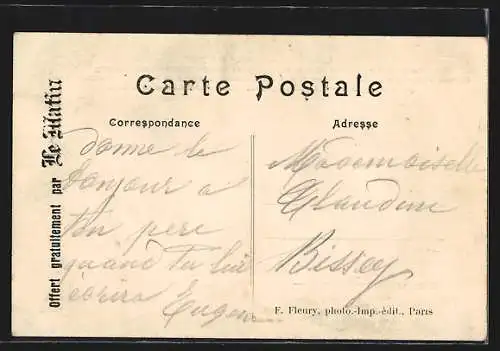 Carte Postale
Correspondance
Adresse
Offert gratuitement par Le Matin
donne le
bonjour a
ton pere
quand Tu lui
ecrira Eugen
Mademoiselle
Claudine
Bissey
F. Fleury, photo.-Imp.-édit., Paris